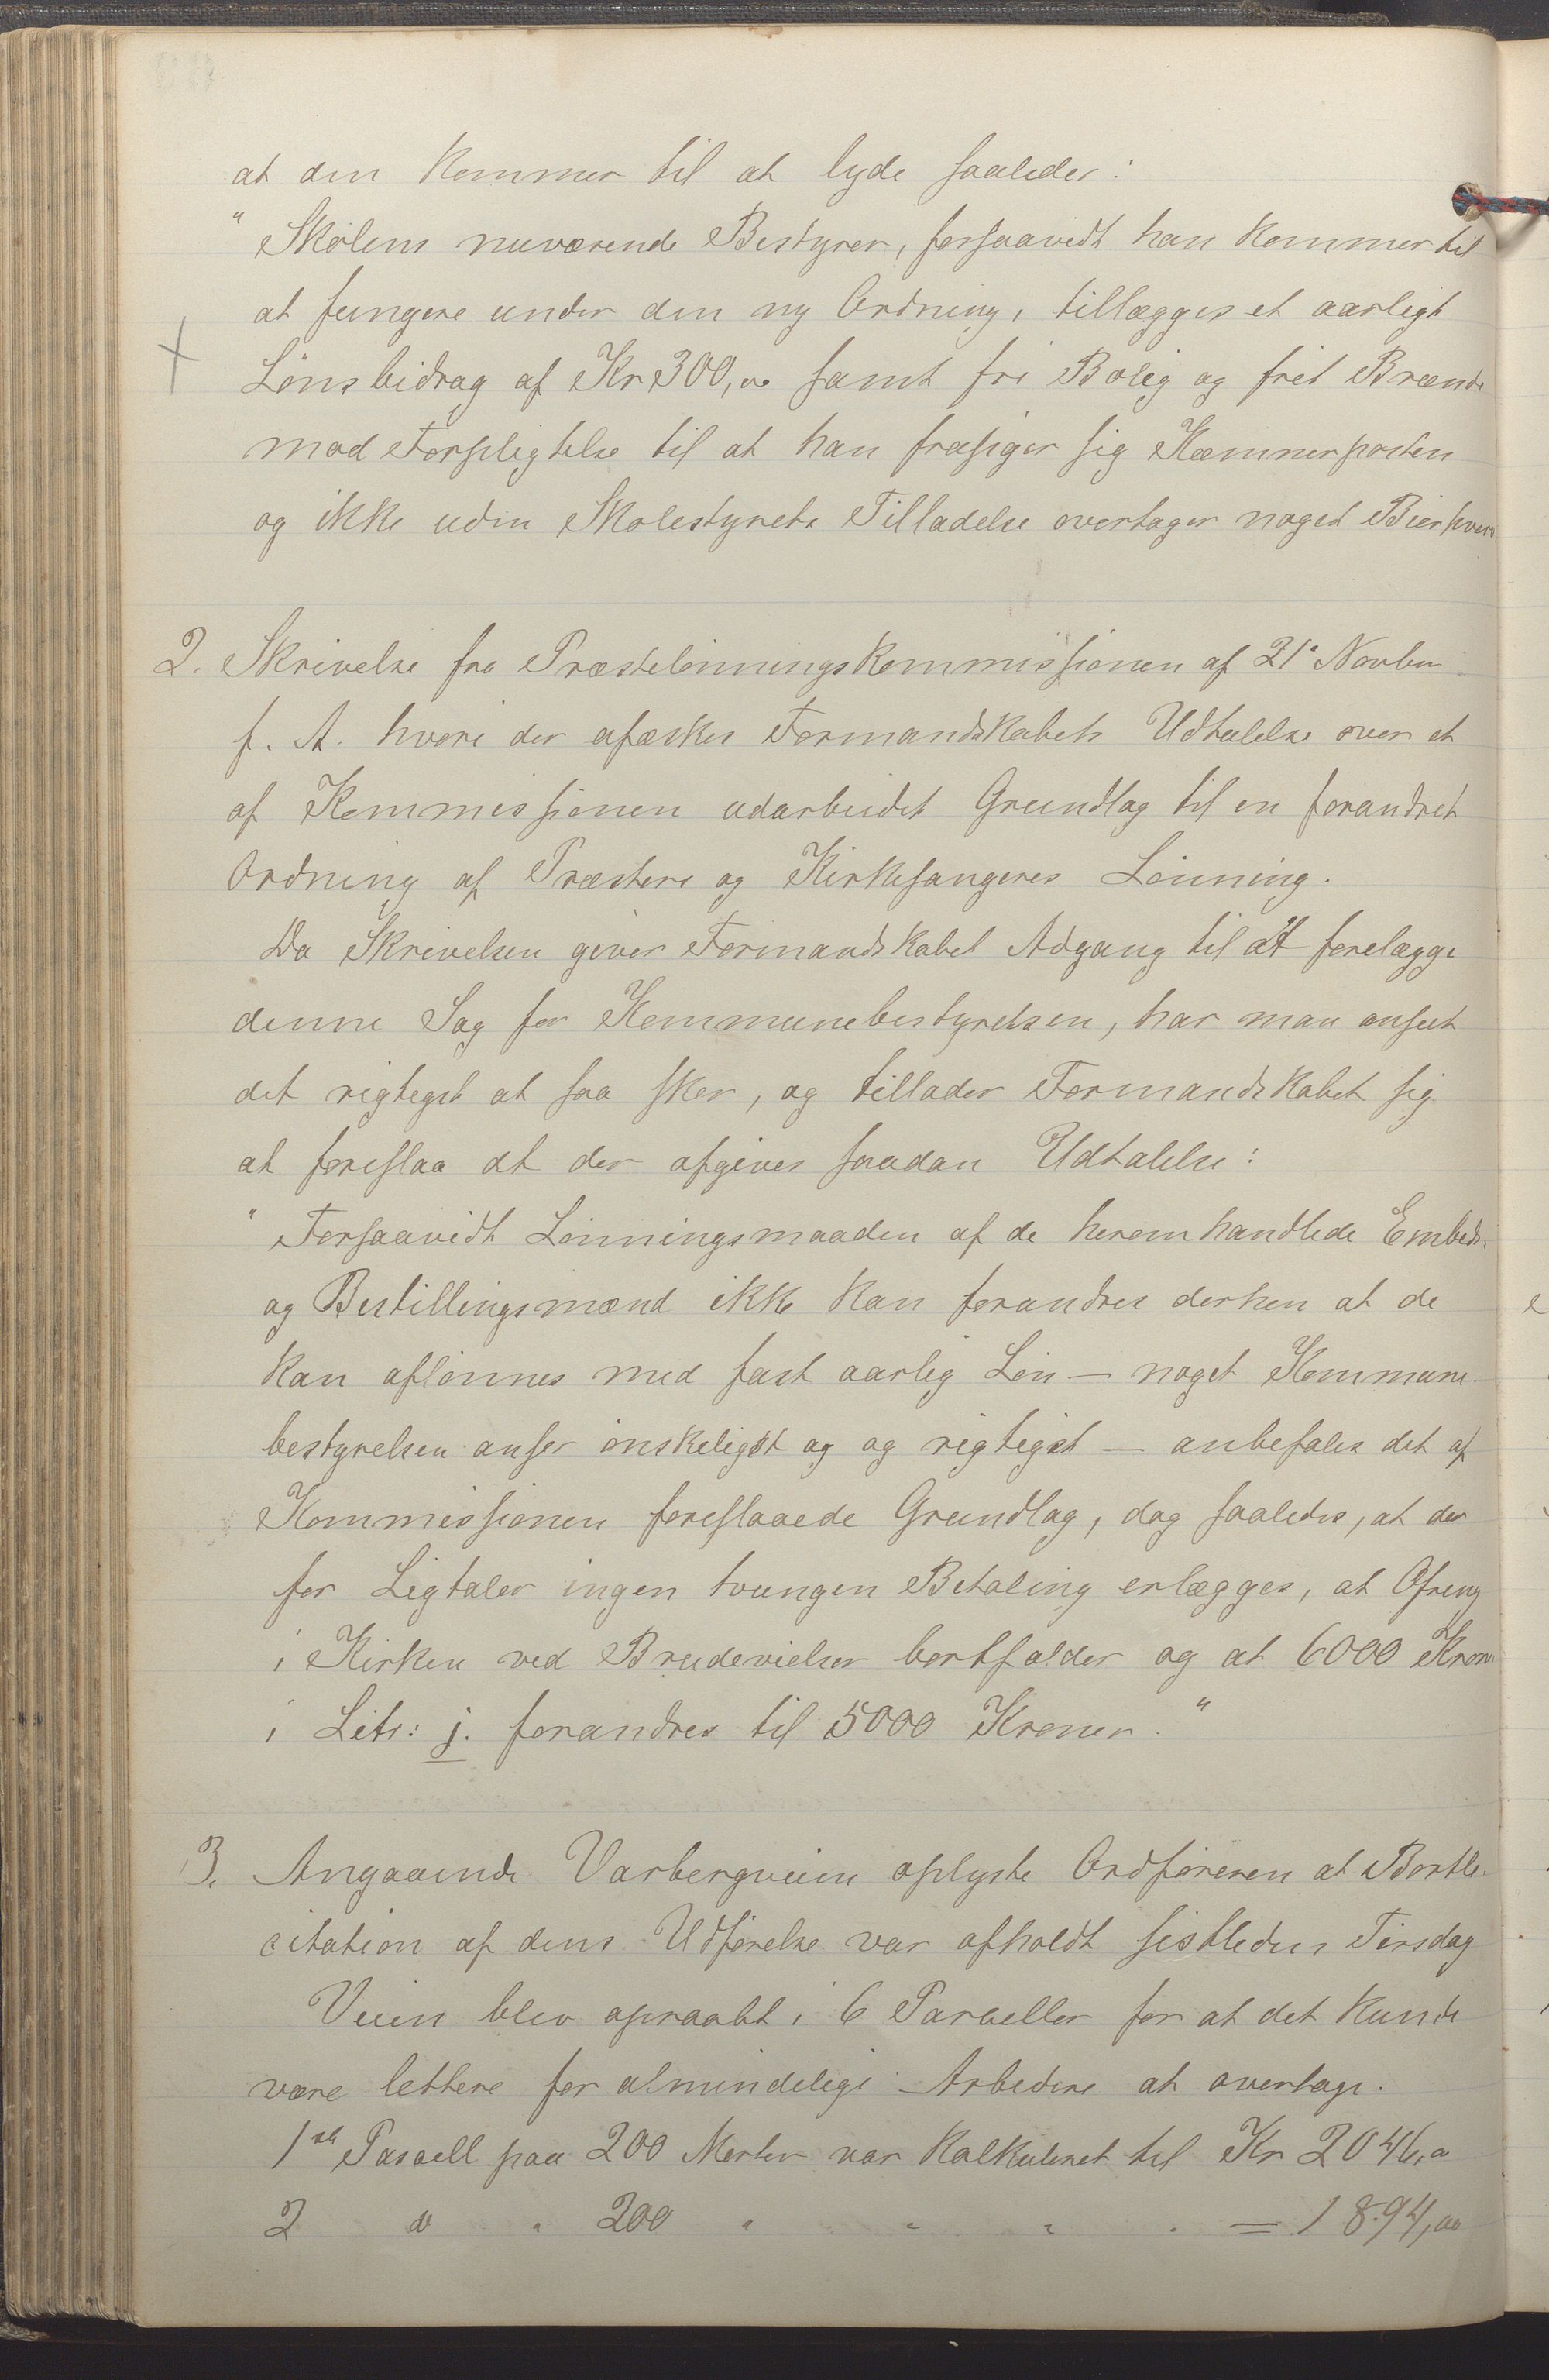 at den kommer til at lyde saaledes:
" Skolens nuværende Bestyrer, forsaavidt han kommer til
at fungere under den ny Ordning, tillægges et aarligt
Lønsbidrag af Kr 300,00 samt fri Bolig og frit Brænde
mod Forpligtelse til at han frasiger sig Kæmnerposten
og ikke uden Skolestyrets Tilladelse overtager noget Bierhverv
2. Skrivelse fra Præstelønningskommissionen af 21de Novbr
f. A. hvori der afæskes Formandskabets Udtalelse over et
af Kommissionen udarbeidet Grundlag til en forandret
Ordning af Præsters og Kirkesangeres Lønning.
Da Skrivelsen giver Formandskabet Adgang til at forelægge
denne Sag for Kommunebestyrelsen, har man anseet
det rigtigst at saa sker, og tillader Formandskabet sig
at foreslaa at der afgives saadan Udtalelse:
" Forsaavidt Lønningsmaaden af de heromhandlede Embeds-
og Bestillingsmænd ikke kan forandres derhen at de
kan aflønnes med fast aarlig Løn — noget Kommune-
bestyrelsen anser ønskeligst og og rigtigst — anbefales det af
Kommissionen foreslaaede Grundlag, dog saaledes, at der
for Ligtaler ingen tvungen Betaling erlægges, at Ofreng
i Kirken ved Brudevielser bortfalder og at 6000 Kroner
i Litr: j. forandres til 5000 Kroner. "
3. Angaaende Varbergveien oplyste Ordføreren at Bortli-
citation af dens Udførelse var afholdt sistleden Tirsdag
Veien blev opraabt i 6 Parceller for at det kunde
være lettere for almindelige Arbeidere at overtage.
1ste Parcell paa 200 Merter var kalkuleret til Kr 2046,00
2 do " 200 " " " " = 1894,00